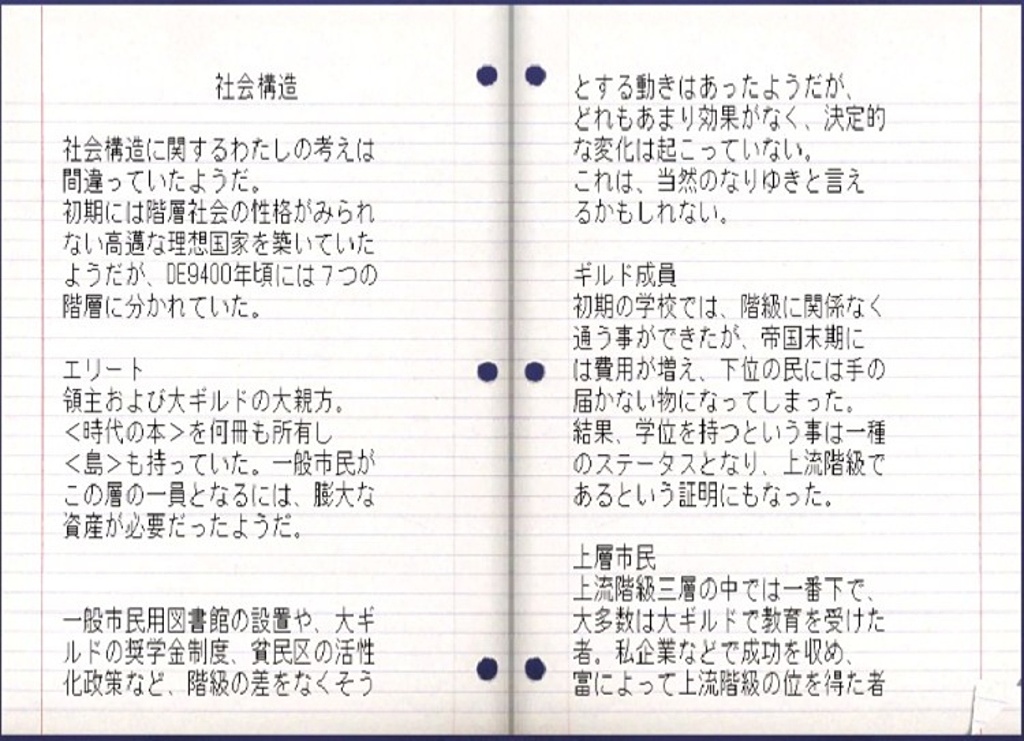 社会構造
社会構造に関するわたしの考えは
間違っていたようだ。
初期には階層社会の性格がみられ
ない高邁な理想国家を築いていた
ようだが、DE9400年頃には７つの
階層に分かれていた。
エリート
領主および大ギルドの大親方。
＜時代の本＞を何冊も所有し
＜島＞も持っていた。一般市民が
この層の一員となるには、膨大な
資産が必要だったようだ。
一般市民用図書館の設置や、大ギ
ルドの奨学金制度、貧民区の活性
化政策など、階級の差をなくそう
とする動きはあったようだが、
どれもあまり効果がなく、決定的
な変化は起こっていない。
これは、当然のなりゆきと言え
るかもしれない。
ギルド成員
初期の学校では、階級に関係なく
通う事ができたが、帝国末期に
は費用が増え、下位の民には手の
届かない物になってしまった。
結果、学位を持つという事は一種
のステータスとなり、上流階級で
あるという証明にもなった。
上層市民
上流階級三層の中では一番下で、
大多数は大ギルドで教育を受けた
者。私企業などで成功を収め、
富によって上流階級の位を得た者